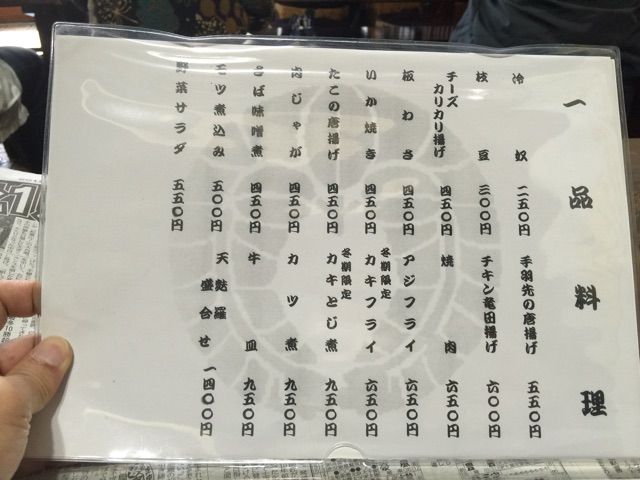 一品料理
冷奴 二五〇円
枝豆 三〇〇円
チーズカリカリ揚げ 四五〇円
板わさ 四五〇円
いか焼き 四五〇円
たこの唐揚げ 四五〇円
肉じゃが 四五〇円
さば味噌煮 四五〇円
モツ煮込み 五〇〇円
野菜サラダ 五五〇円
手羽先の唐揚げ 五五〇円
チキン竜田揚げ 六〇〇円
焼肉 六五〇円
アジフライ 六五〇円
冬期限定
カキフライ 六五〇円
冬期限定
カキとじ煮 九五〇円
カツ煮 九五〇円
牛皿 九五〇円
天麩羅盛合せ 一四〇〇円